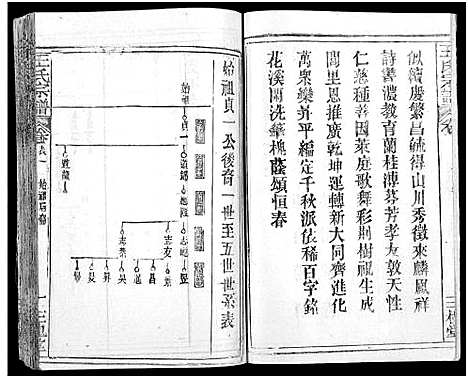 似續慶繁昌毓得山川秀徵來麟鳳祥
詩書濃教育蘭桂溥芬芳孝友敦天性
仁慈種善因萊庭歌舞彩荆樹祝生成
閭里恩推廣乾坤運轉新大同齊進化
萬衆樂昇平編定千秋派依稀百字銘
花溪開洗肇槐蔭頌恒春
始祖貞一公後裔一世至五世世系表
王氏宗譜
始祖
貞一
道龍
志友
志忠
志英
昊
昇
昌
三槐堂